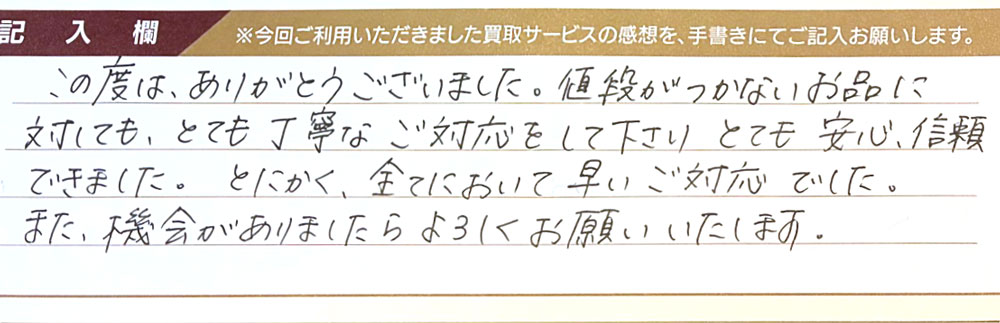 記入欄 ※今回ご利用いただきました買取サービスの感想を、手書きにてご記入お願いします。
この度は、ありがとうございました。値段がつかないお品に
対しても、とても丁寧なご対応をして下さり とても 安心、信頼
できました。 とにかく、全てにおいて早いご対応でした。
また、機会がありましたらよろしくお願いいたします。